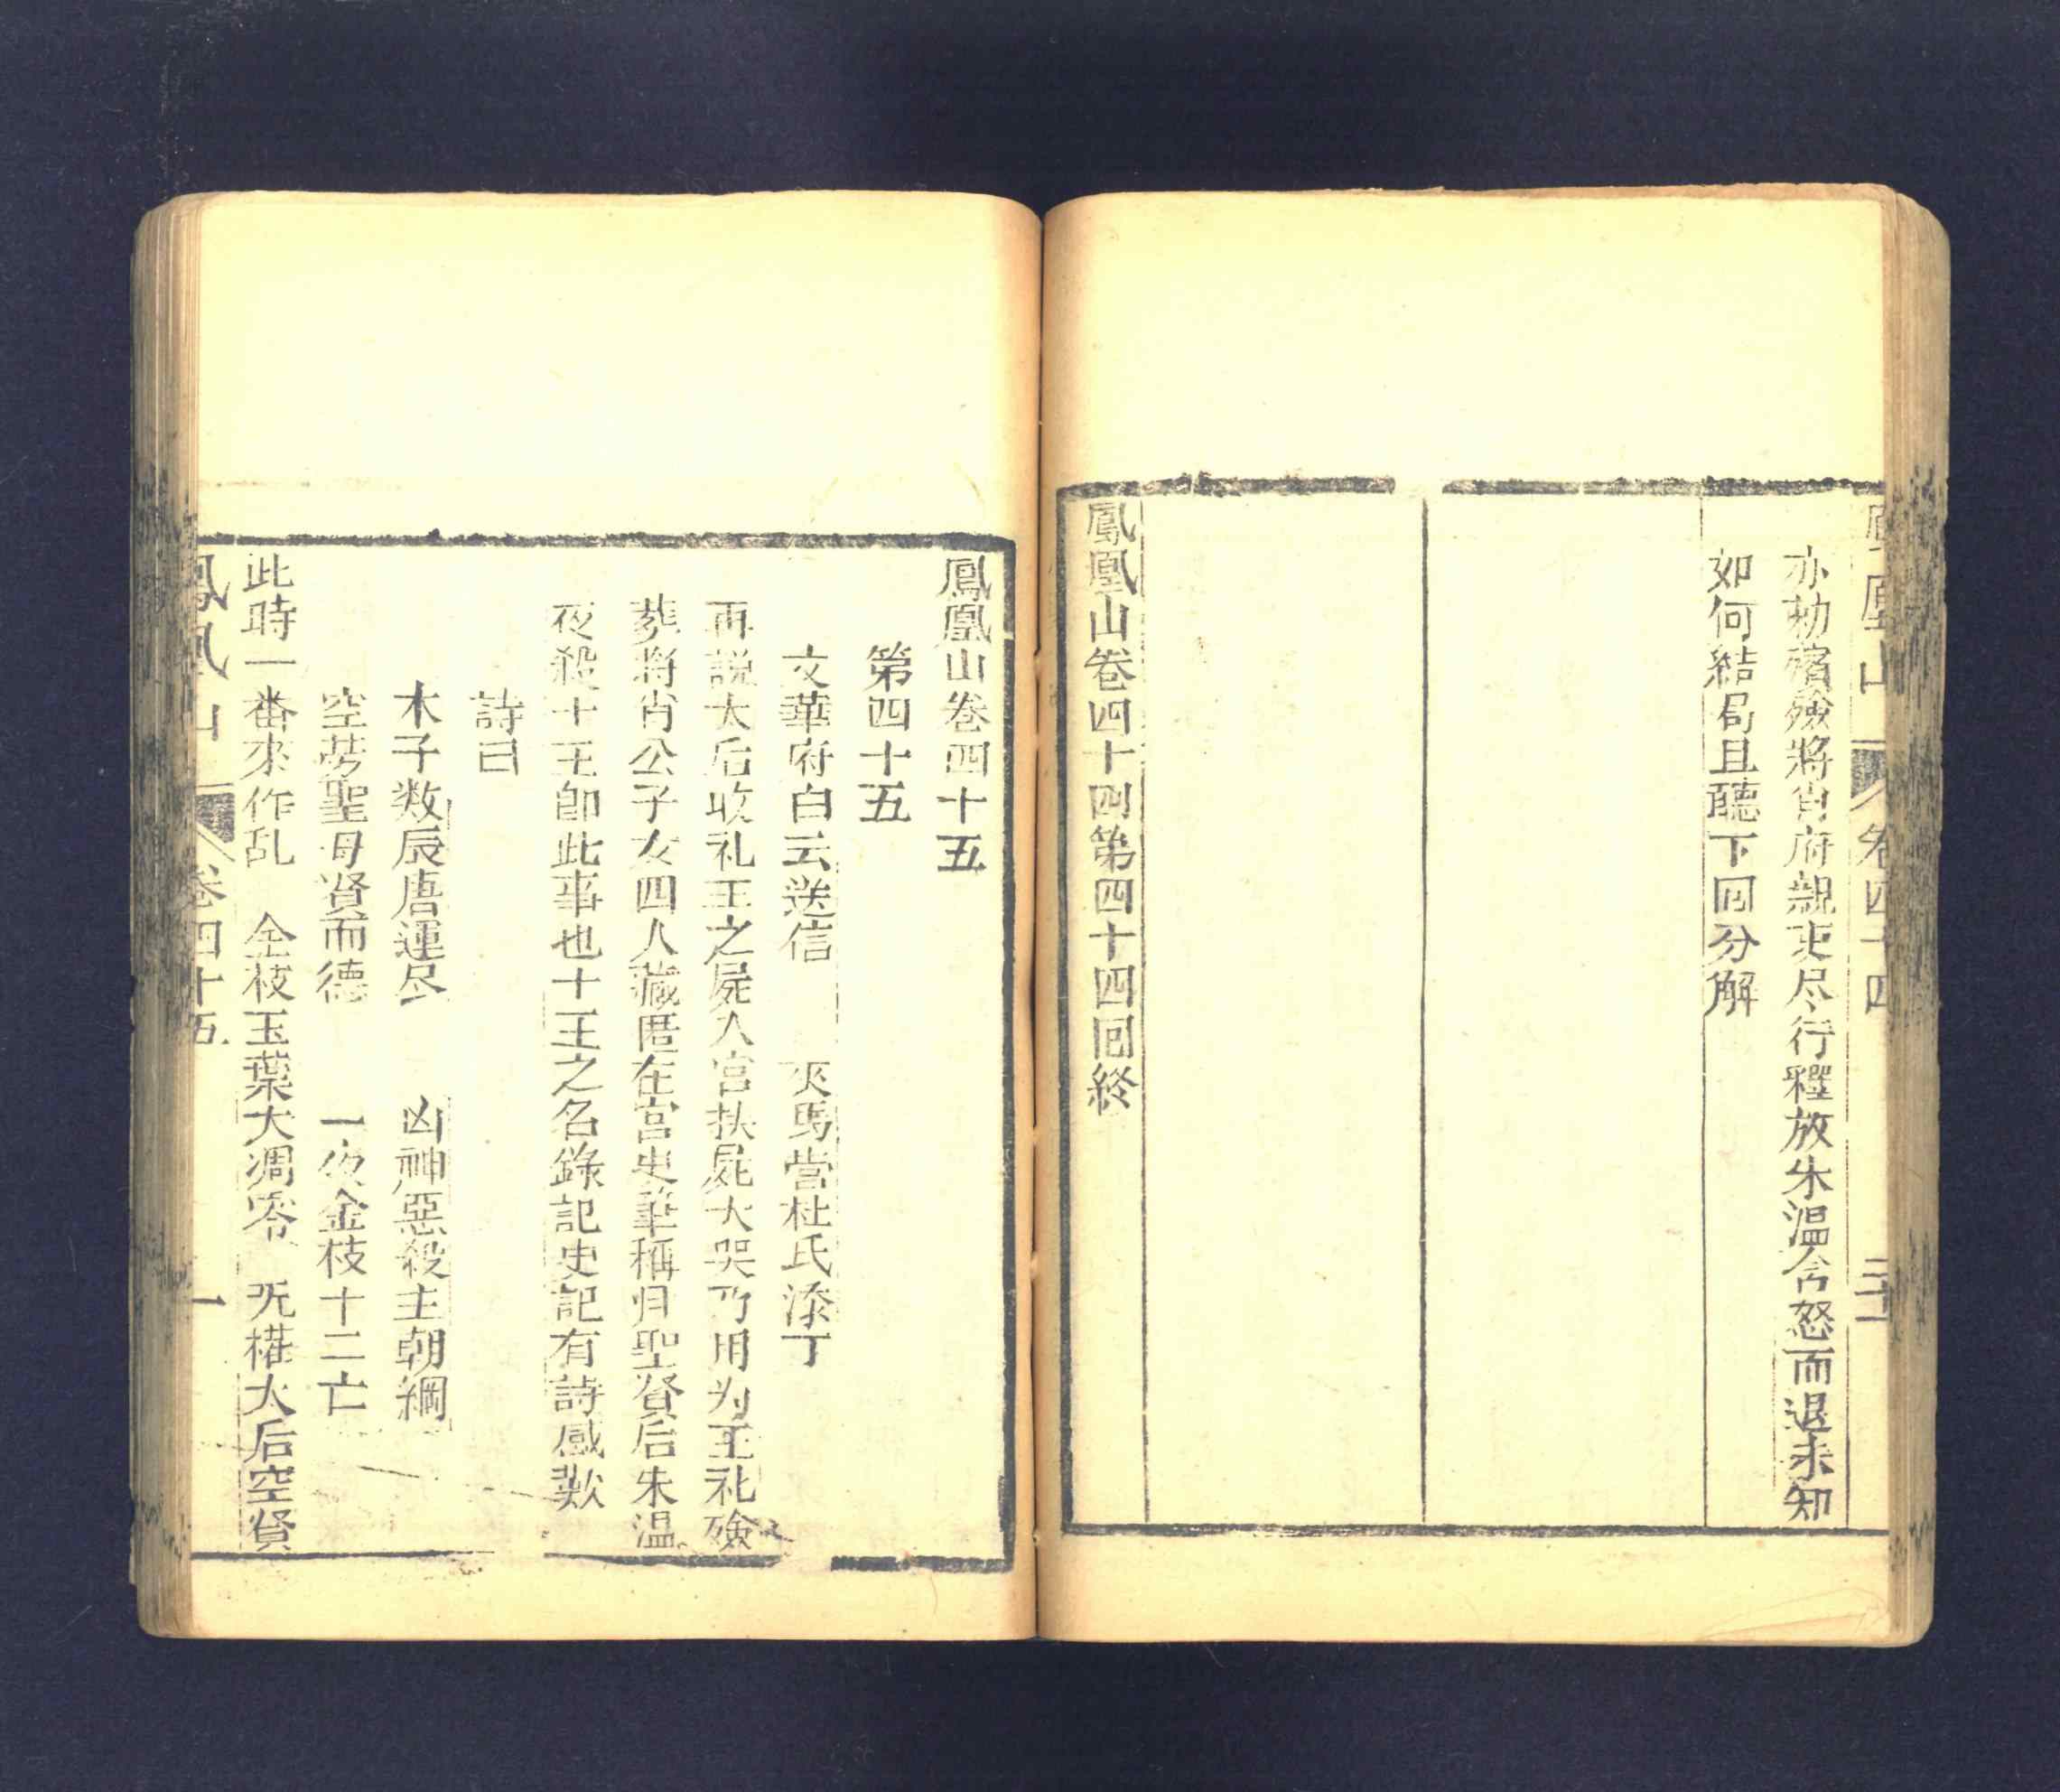 鳳凰山 卷四十四
亦勑殯殮將肖府親吏尽行釋放朱温含怒而退未知
如何結局且聽下回分解
鳳凰山卷四十四第四十四回終
鳳凰山卷四十五
第四十五
文華府白云送信 夾馬营杜氏添丁
再説太后收礼王之屍入宮扶屍大哭乃用为王礼殮
葬将肖公子女四人藏匿在宮史筆稱归聖賢后朱温
夜殺十王卽此事也十王之名錄記史記有詩感歎
詩曰
木子数辰唐運尽 凶神惡殺主朝綱
空劳聖母賢而德 一夜金枝十二亡
此時一番來作乱 金枝玉葉大凋零 旡權太后空賢
鳳凰山 卷四十五 一